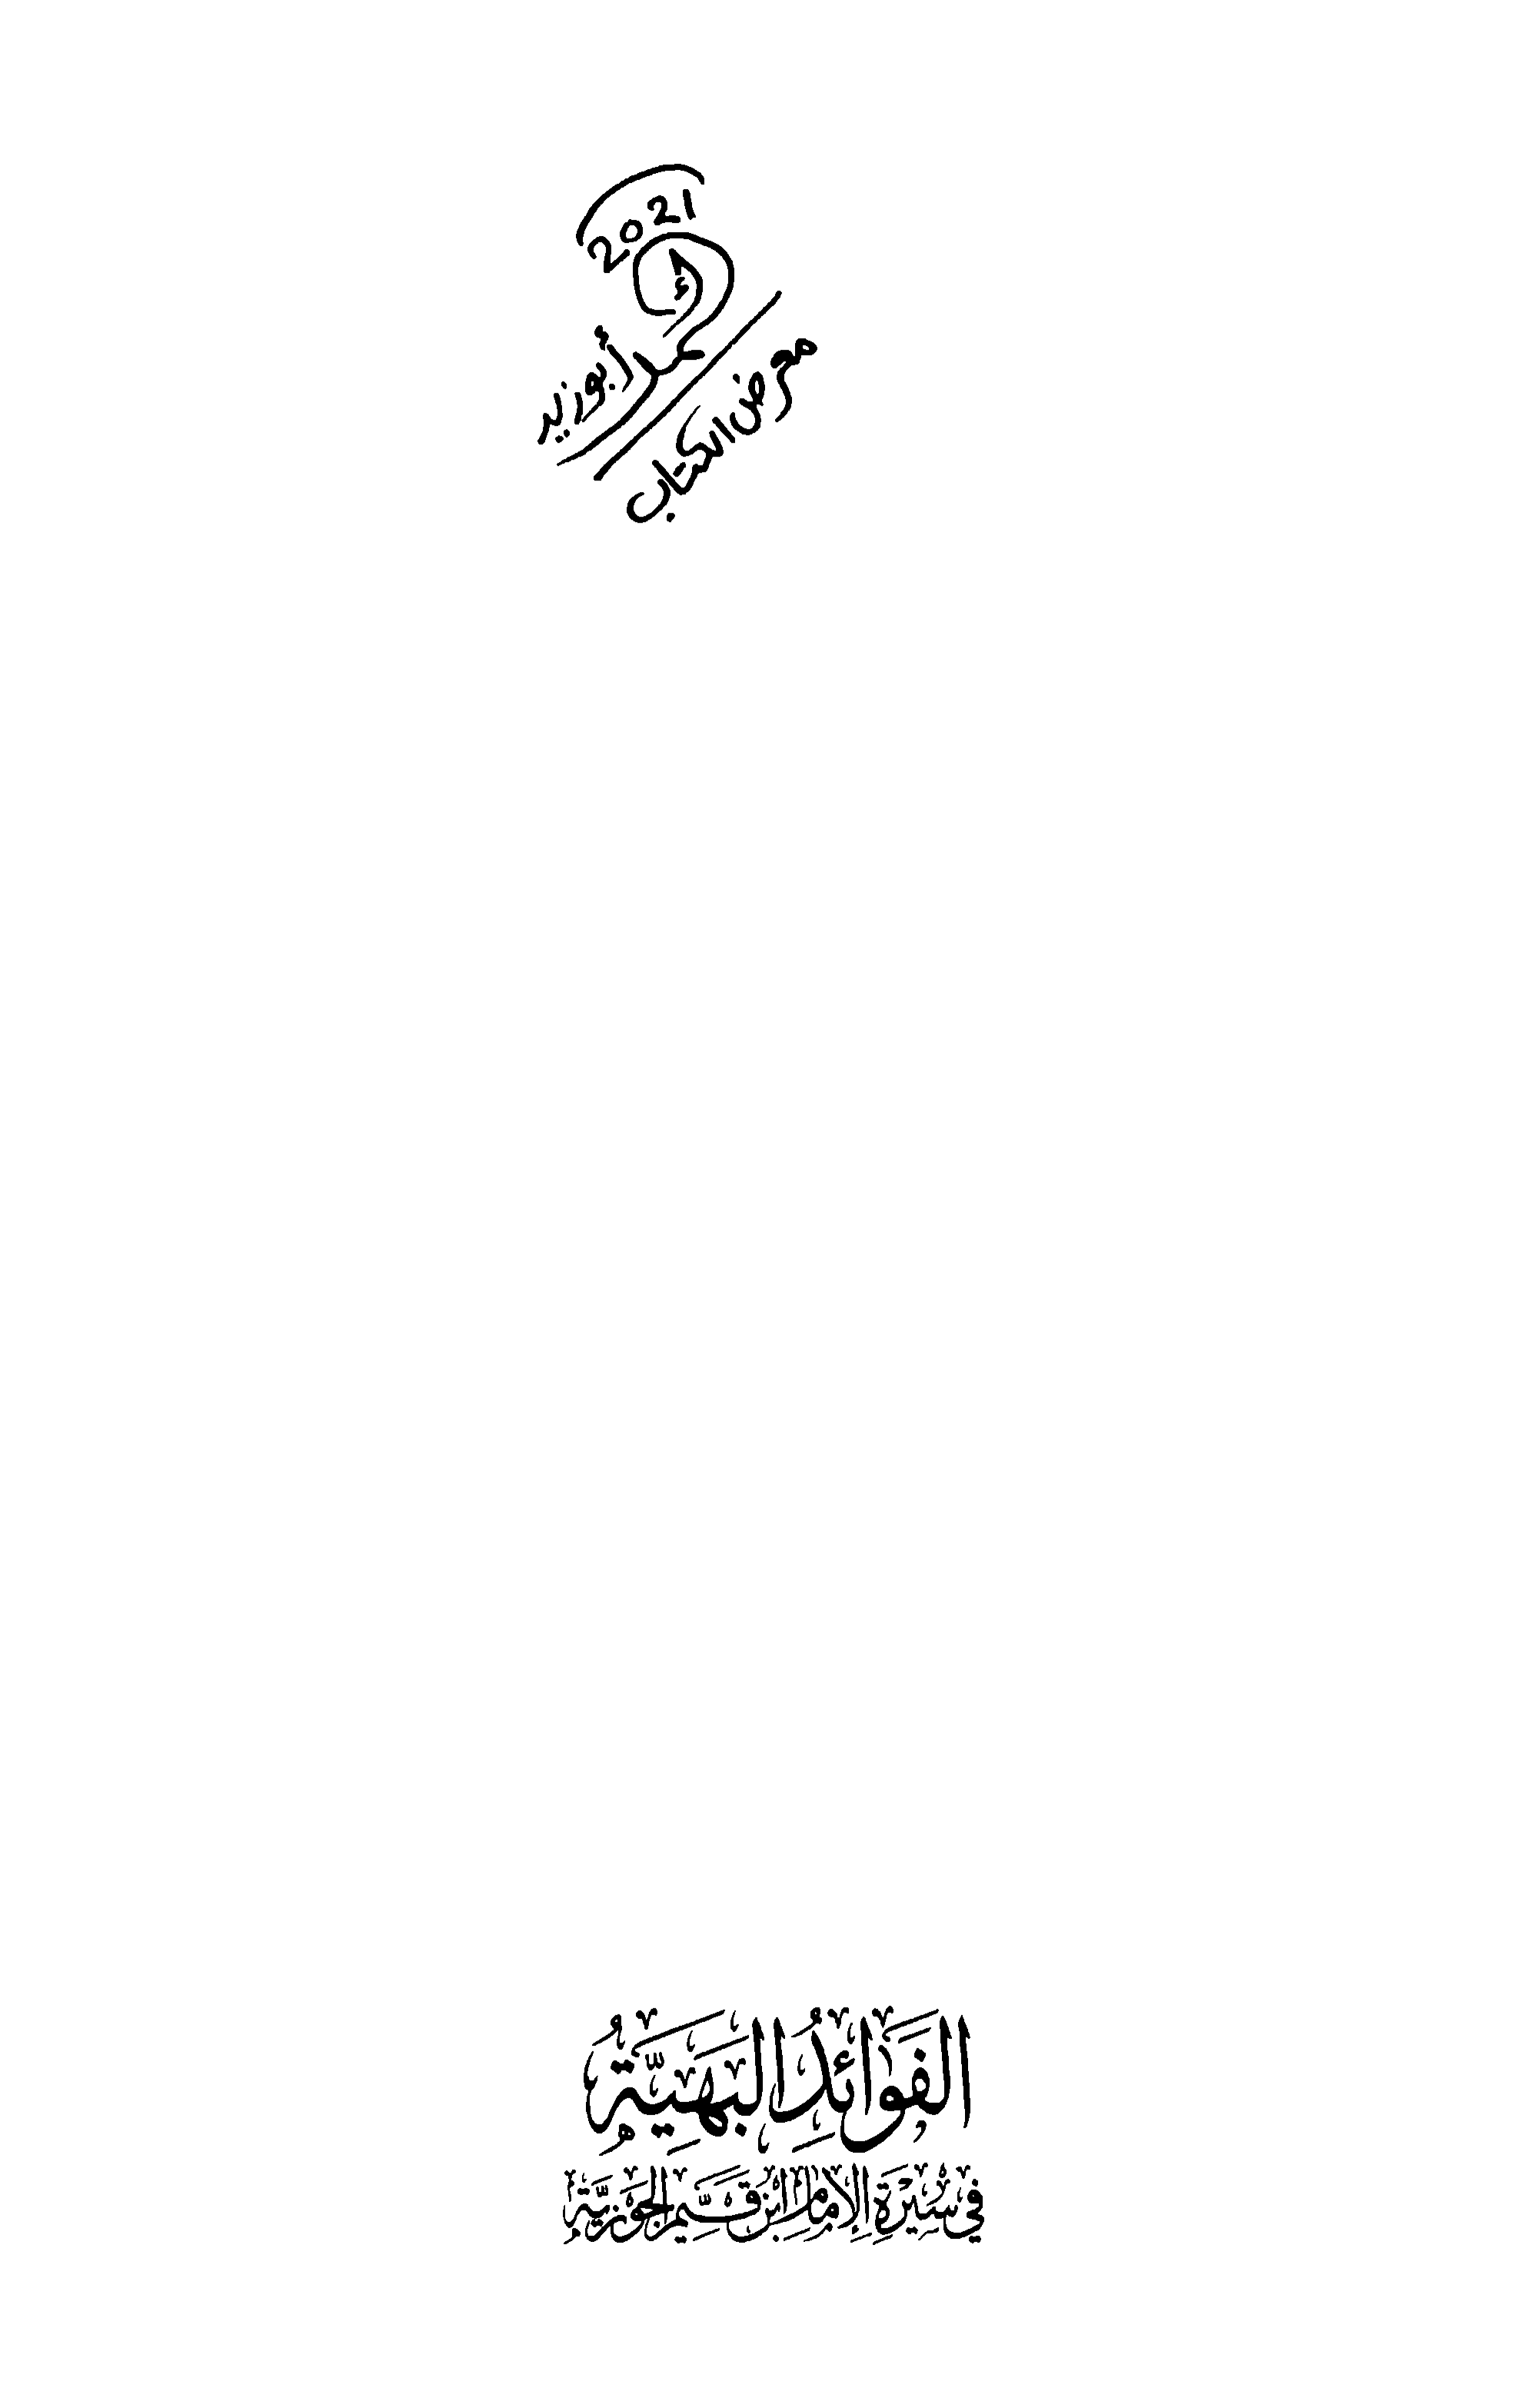 2021
أحمد أبوزيد
معرض الكتاب
الفَوَائِدُ البَهِيَّةُ
فِي سِيرَةِ الإِمَامِ ابْنِ قَيِّمِ الجَوْزِيَّةِ